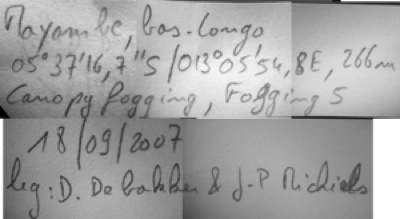 Mayombe, bas-Congo
05°37'16,7"S/013°05'54,8E, 266m
Canopy fogging, Fogging 5
18/09/2007
leg: D. De Bakker & J-P Michiels